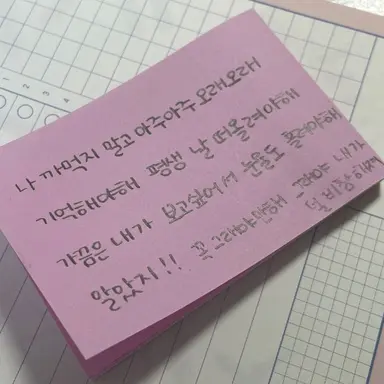 나 까먹지 말고 아주아주 오래오래
기억해야해 평생 날 떠올려야해
가끔은 내가 보고싶어서 눈물도 흘려야해
알았지!! 꼭 그래야만해 그래야 내가
덜 비참해져
1 2 3 4